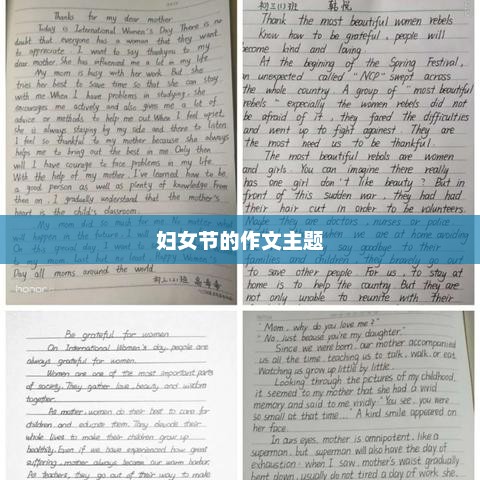 Thanks for my dear mother
Today is International Women's Day. There is no
doubt that everyone has a woman that they want
to appreciate. I want to say thanks to my
dear mother. She has influenced me a lot in my life.
My mom is busy with her work. But she
tries her best to save time so that she can stay
with me. When I have problems in studying, she
encourages me actively and also gives me a lot of
advice or methods to help me out. When I feel upset,
she is always staying by my side and there to listen.
I feel so thankful to my mother because she always
helps me to bring out the best in me. Only then
will I have courage to face problems in my life.
With the help of my mother, I've learned how to be
a good person as well as plenty of knowledge. From
then on, I gradually understand that the mother's
heart is the child's classroom.
to my mom
Day all moms around the world.
初三(2)班
honor
初三(1)班 韩悦
Thank the most beautiful women rebels
Know how to be grateful, people will
become kind and loving.
At the begining of the Spring Festival,
an unexpected called "NCP" swept across
the whole country. A group of "most beautiful
rebels" especially the women rebels did not
be afraid of it, they faced the difficulties
and went up to fight against. They are
the most need us to be thankful.
The most beautiful rebals are women
and girls. You can imagine there really
has one girl don't like beauty? But in
front of this sudden war, they had had
their hair cut in order to be volunteers.
Maybe they are doctors, nurses or police.
when we are at home avoiding
say goodbye to their
families and children, they bravely go out
to save other people. For us, to stay at
home is to help the country. But they are
not only unable to reunite with their
妇女节的作文主题
Be grateful for women
On International Women's day, people are
always grateful for women.
Women are one of the most important parts
of society. They gather love, beauty and wisdom
together.
As mother, women do their best to care for
children and educate them. They devote their
whole lives to make their children grow up
healthily. Even if we have experienced how great
suffering, mother always become our warm harbor.
As teachers, they go out of their way to make
"Mom, why do you love me?"
"No, just because you're my daughter."
Since we were born, our mother accompanied
us all the time, teaching us to talk, walk, or eat.
Watching us grow up little by little.
Looking through the pictures of my childhood,
it seemed to my mother that she had a vivid
memory and said to me vividly "You see, you were
so small at that time..." A kind smile appeared on
her face.
In our eyes, mother is omnipotent, like a
superman, but superman will also have the day of
exhaustion. when I saw, mother's waist gradually
bent down, usually do not tired a day of work, she